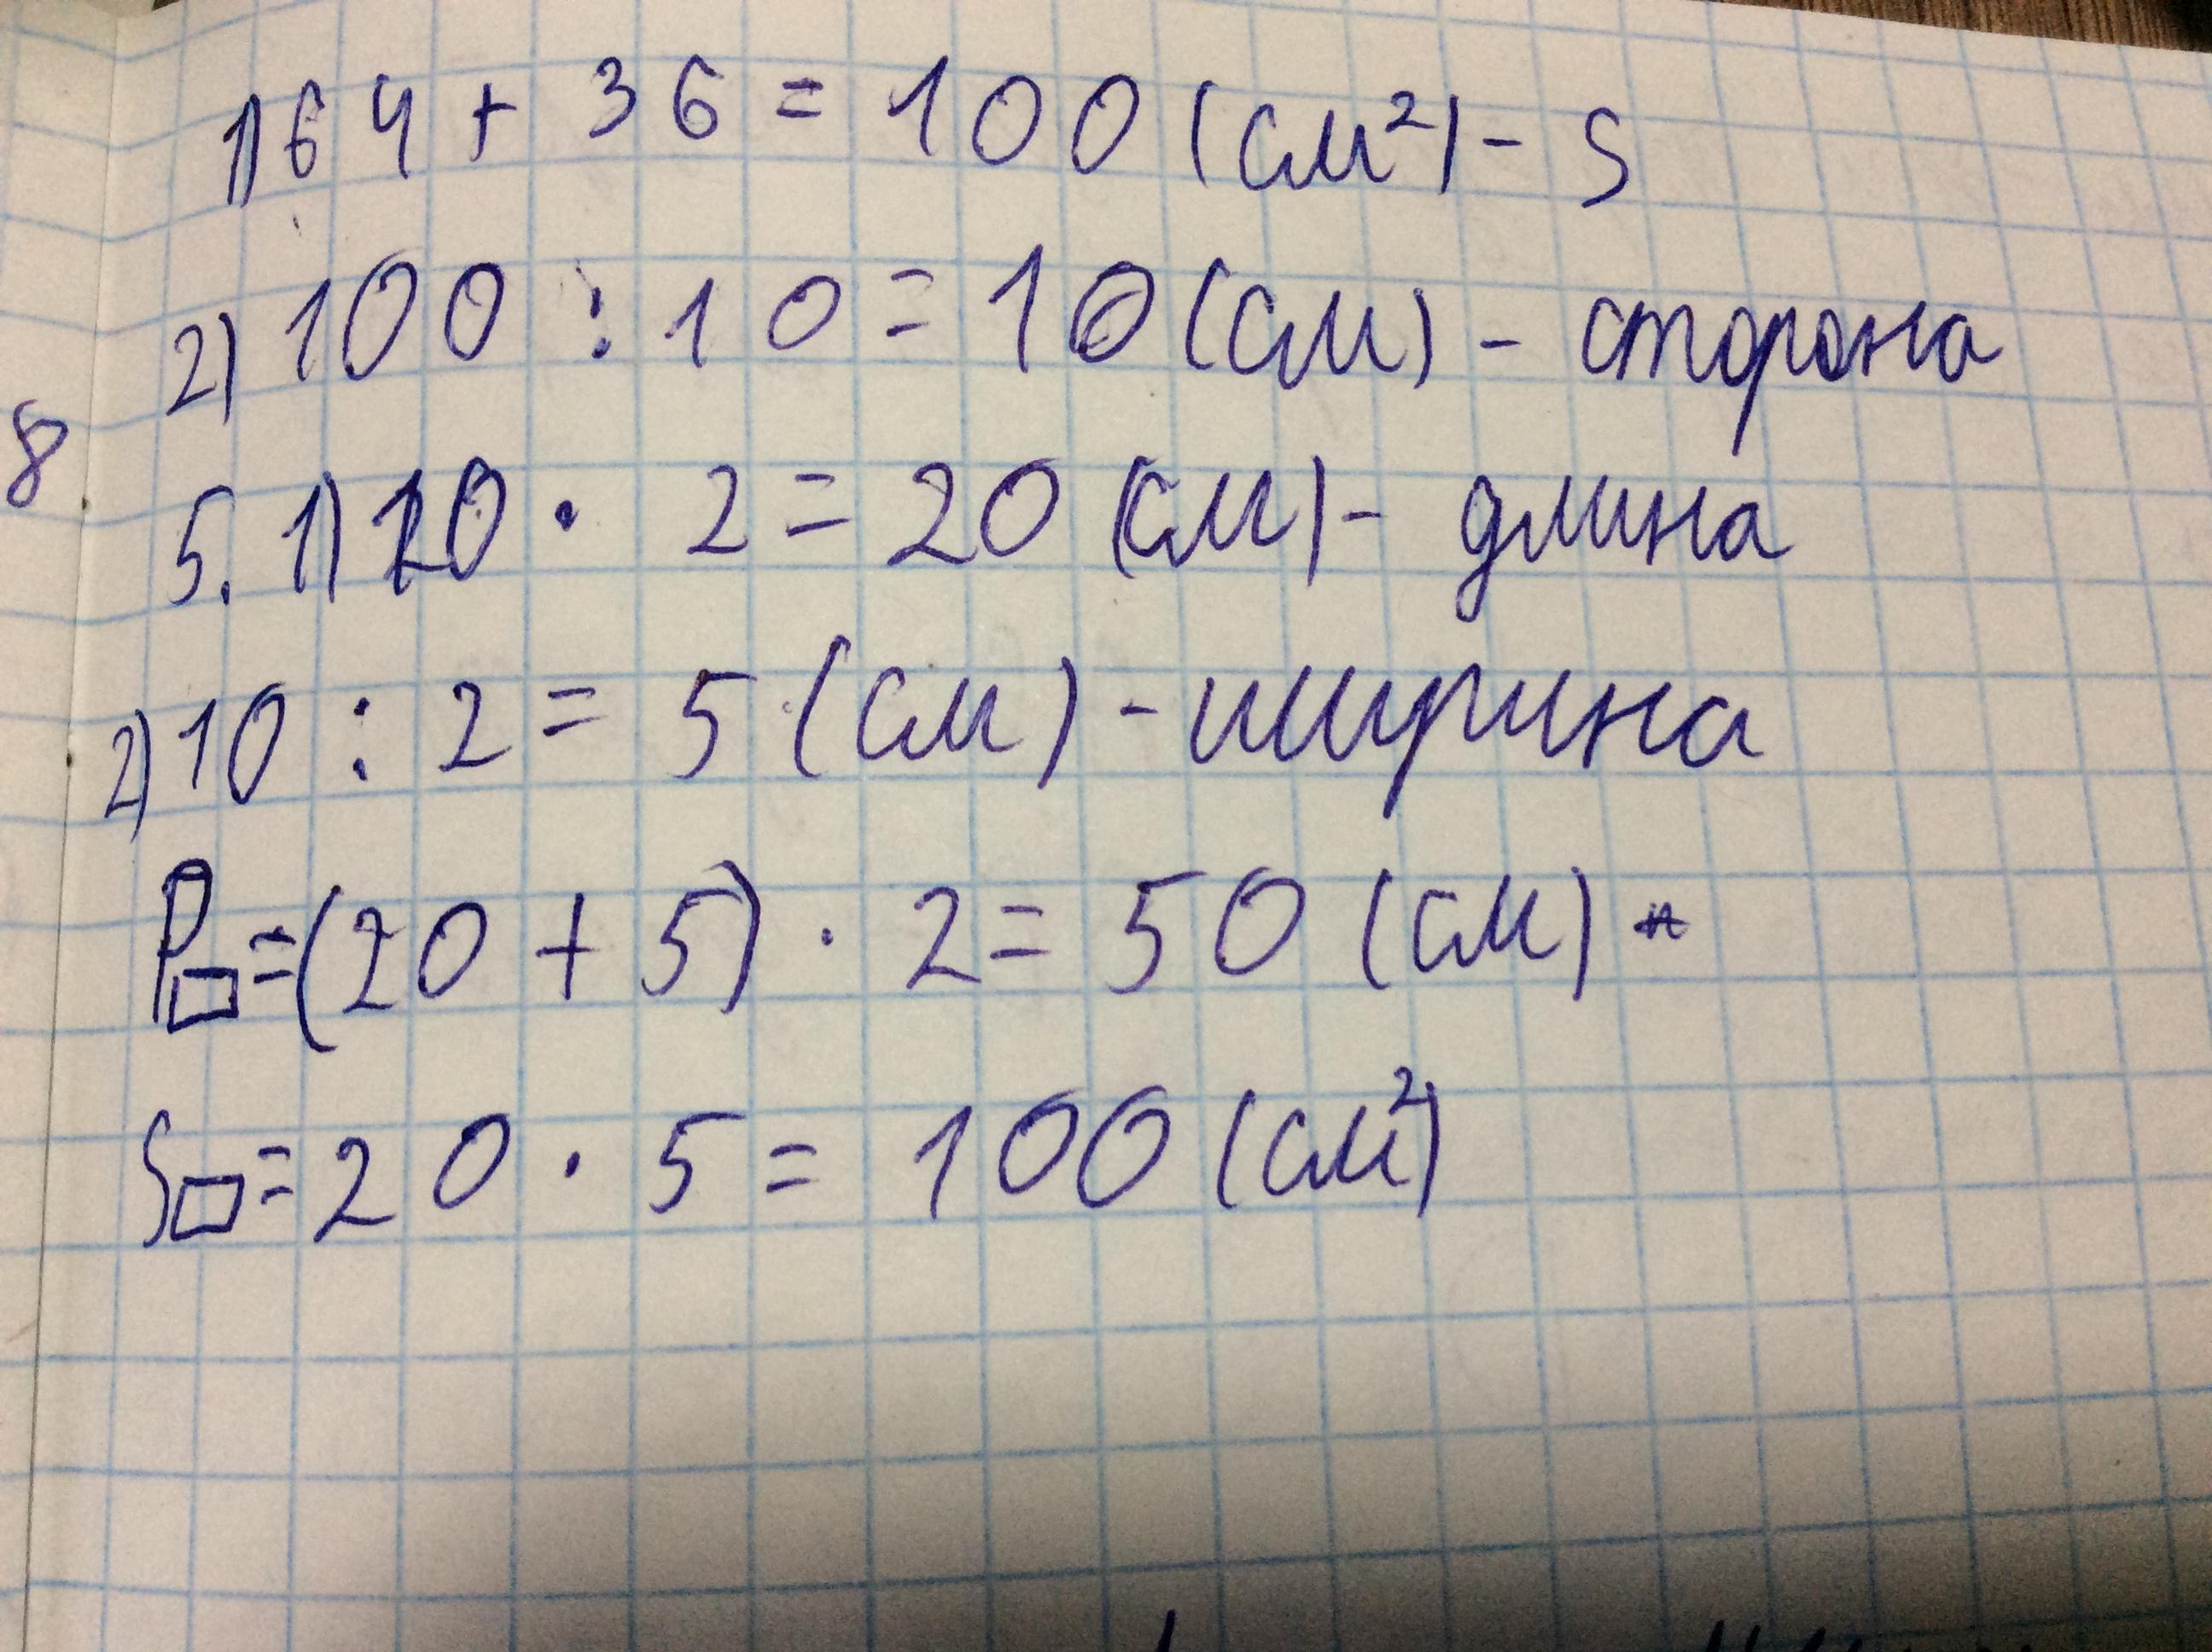 1) 64 + 36 = 100 (см²) - S
2) 100 : 10 = 10 (см) - сторона
8
5. 1) 10 · 2 = 20 (см) - длина
2) 10 : 2 = 5 (см) - ширина
P▭ = (20 + 5) · 2 = 50 (см)
S▭ = 20 · 5 = 100 (см²)